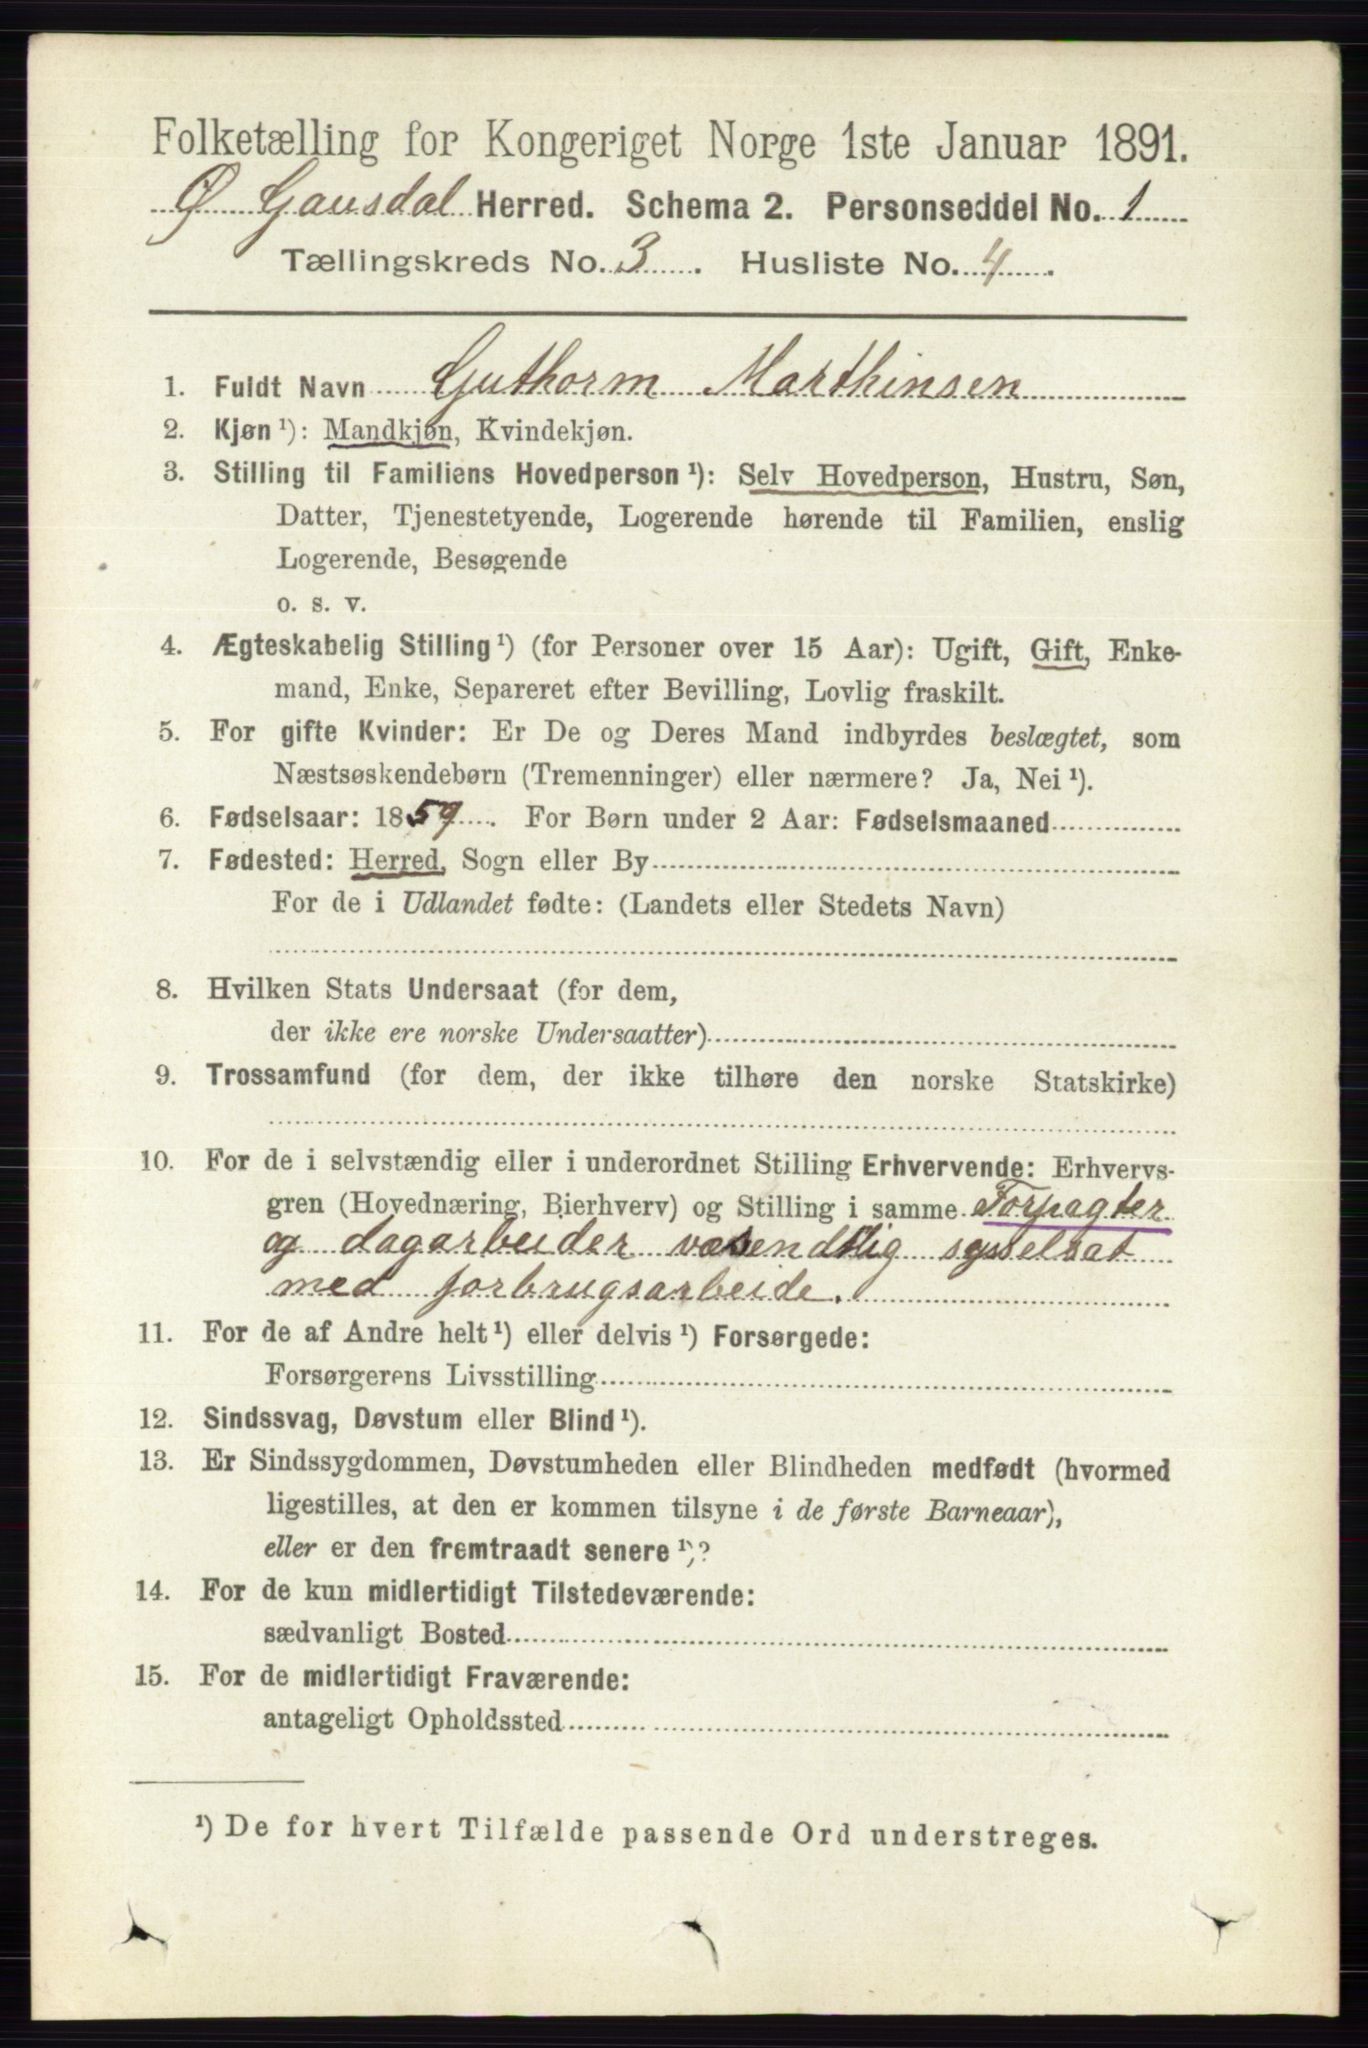 Folketælling for Kongeriget Norge 1ste Januar 1891.
Ø Gausdal Herred. Schema 2. Personseddel No. 1
Tællingskreds No. 3. Husliste No. 4.
1. Fuldt Navn Guthorm Marthinsen
2. Kjøn ¹): Mandkjøn, Kvindekjøn.
3. Stilling til Familiens Hovedperson ¹): Selv Hovedperson, Hustru, Søn,
Datter, Tjenestetyende, Logerende hørende til Familien, enslig
Logerende, Besøgende
o. s. v.
4. Ægteskabelig Stilling ¹) (for Personer over 15 Aar): Ugift, Gift, Enke-
mand, Enke, Separeret efter Bevilling, Lovlig fraskilt.
5. For gifte Kvinder: Er De og Deres Mand indbyrdes beslægtet, som
Næstsøskendebørn (Tremenninger) eller nærmere? Ja, Nei ¹).
6. Fødselsaar: 1859. For Børn under 2 Aar: Fødselsmaaned
7. Fødested: Herred, Sogn eller By
For de i Udlandet fødte: (Landets eller Stedets Navn)
8. Hvilken Stats Undersaat (for dem,
der ikke ere norske Undersaatter)
9. Trossamfund (for dem, der ikke tilhøre den norske Statskirke)
10. For de i selvstændig eller i underordnet Stilling Erhvervende: Erhvervs-
gren (Hovednæring, Bierhverv) og Stilling i samme Forpagter
og dagarbeider væsendtlig sysselsat
med jorbrugsarbeide.
11. For de af Andre helt ¹) eller delvis ¹) Forsørgede:
Forsørgerens Livsstilling
12. Sindssvag, Døvstum eller Blind ¹).
13. Er Sindssygdommen, Døvstumheden eller Blindheden medfødt (hvormed
ligestilles, at den er kommen tilsyne i de første Barneaar),
eller er den fremtraadt senere ¹)?
14. For de kun midlertidigt Tilstedeværende:
sædvanligt Bosted
15. For de midlertidigt Fraværende:
antageligt Opholdssted
¹) De for hvert Tilfælde passende Ord understreges.